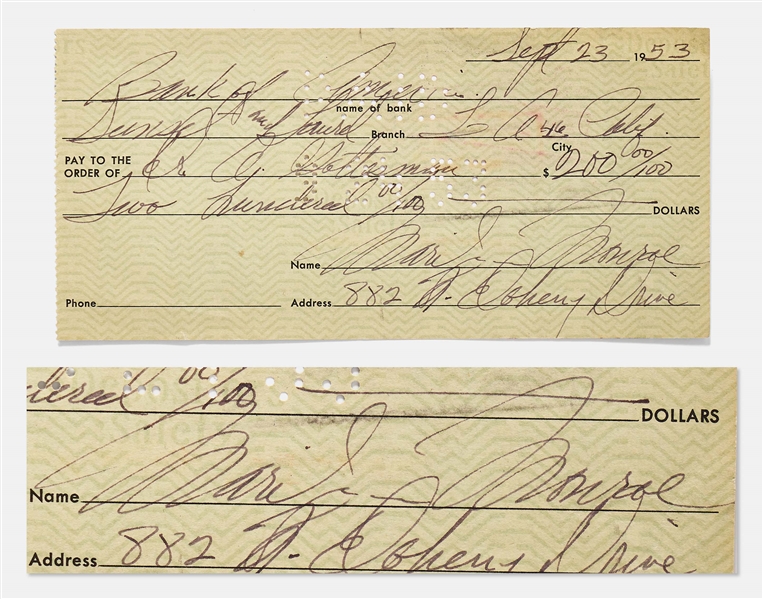 Sept 23 1953
Bank of America
name of bank
Sunset and Laurel Branch L A 46 Calif.
City
PAY TO THE
ORDER OF $ 200 00/100
Two hundred 00/100 DOLLARS
Name Marilyn Monroe
Phone Address 882 N. Doheny Drive
undered 00/100 DOLLARS
Name Marilyn Monroe
Address 882 N. Doheny Drive